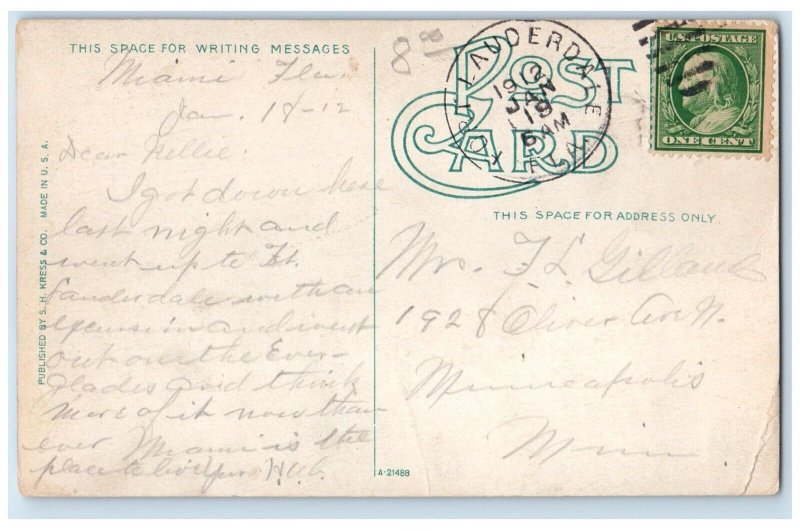 THIS SPACE FOR WRITING MESSAGES
Miami Fla.
Jan. 18-12
Dear Nellie:
I got down here
last night and
went up to Ft.
Lauderdale with an
excursion and went
out on the Ever-
glades and think
more of it now than
ever Miami is the
place to live
PUBLISHED BY S. H. KRESS & CO. MADE IN U. S. A.
POST CARD
FORT LAUDERDALE
FLA
JAN
19
6 AM
1912
U.S. POSTAGE
ONE CENT
THIS SPACE FOR ADDRESS ONLY
Mrs. F. L. Gilland
1928 Oliver Ave N.
Minneapolis
Minn
A-21488